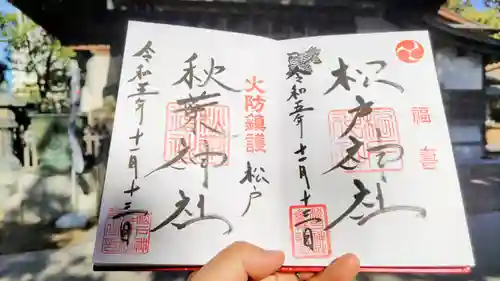 松戸神社
福喜
令和五年十一月十三日
火防鎮護
松戸
秋葉神社
令和五年十一月十三日